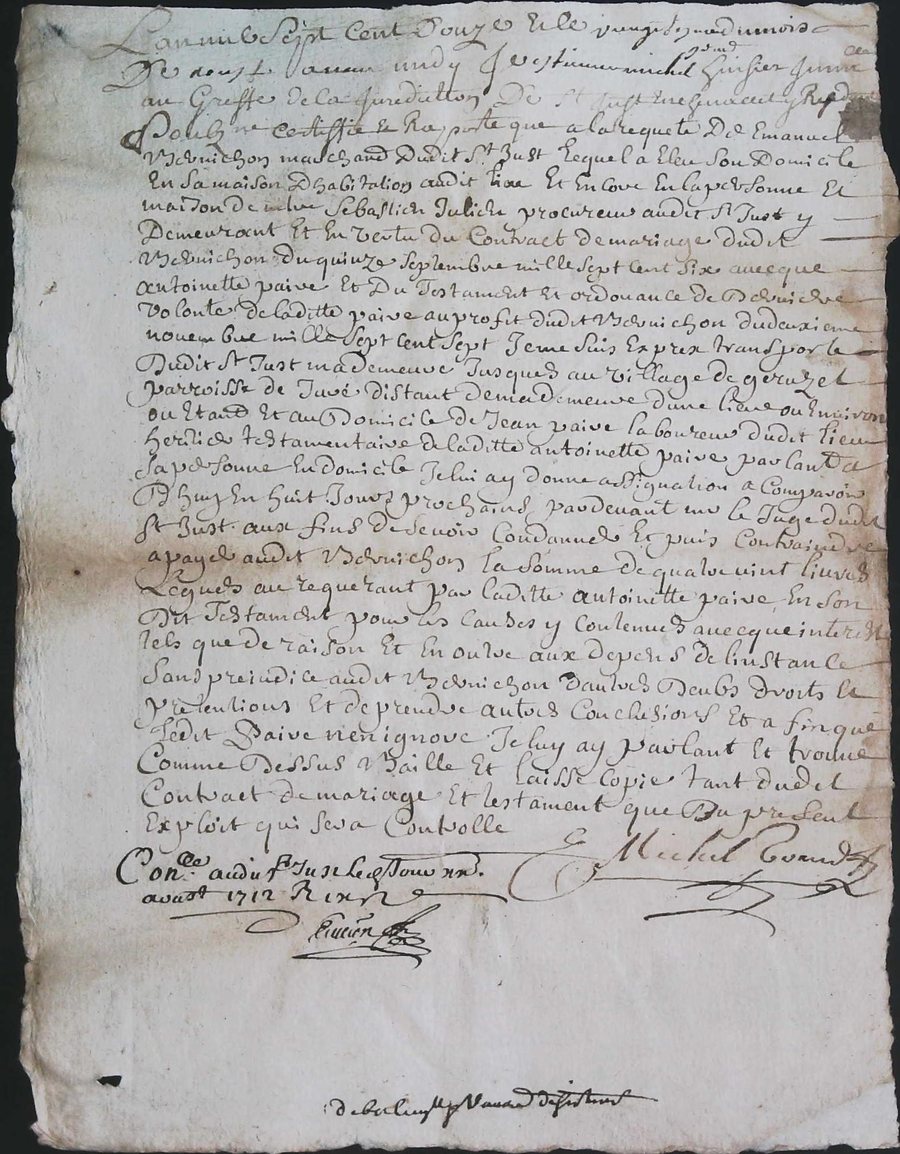 L'an mil sept cent douze et le vingt du mois
D'aoust avant midy Je Michel huissier Immle
au Greffe de la Jurediction De St Just y Resident
Soubzne certiffie et Raporte que a la requete De Emanuel
Vernichon marchand dudit St Just Lequel a Eleu son Domicile
En sa maison D'habitation audit lieu Et Encore En la personne Et
maison de mtre Sebastien Julien procureur audit St Just y
Demeurant Et En vertu du Contract de mariage dudit
Vernichon du quinze septembre mille sept cent six avecque
antoinette paire Et Du Testament Et ordonance de Derniere
volonte de laditte paire au profit dudit Vernichon du deuxieme
novembre mille sept cent sept Je me suis Exprex transporte
Dudit St Just ma demeure Jusques au village de geruzet
parroisse de Juré distant de ma demeure d'une lieue ou Environ
ou Etand Et au Domicile de Jean paire laboureur dudit lieu
heritier testamentaire de laditte antoinette paire parlant a
sa personne En domicile Je lui ay donne assignation a Comparoir
D'huy En huit Jours prochains pardevant mr le Juge dudit
St Just aux fins de se voir Condanner Et puis Contraindre
a payer audit Vernichon la somme de quatre vint livres
Leguee au requerant par laditte antoinette paire En son
Dit Testament pour les Causes y Contenues avecque interests
tels que de raison Et En outre aux depens de linstance
sans prejudice audit Vernichon d'autres Deubs droits Et
pretentions Et de prendre autres Conclusions Et a fin que
Ledit Paire n'en ignore Je luy ay parlant Et trouve
Comme Dessus Baille Et laisse Copie tant dudit
Contract de mariage Et testament que Du present
Exploit qui sera Controlle
Michel
Conlle audit St Just le
aoust 1712 R